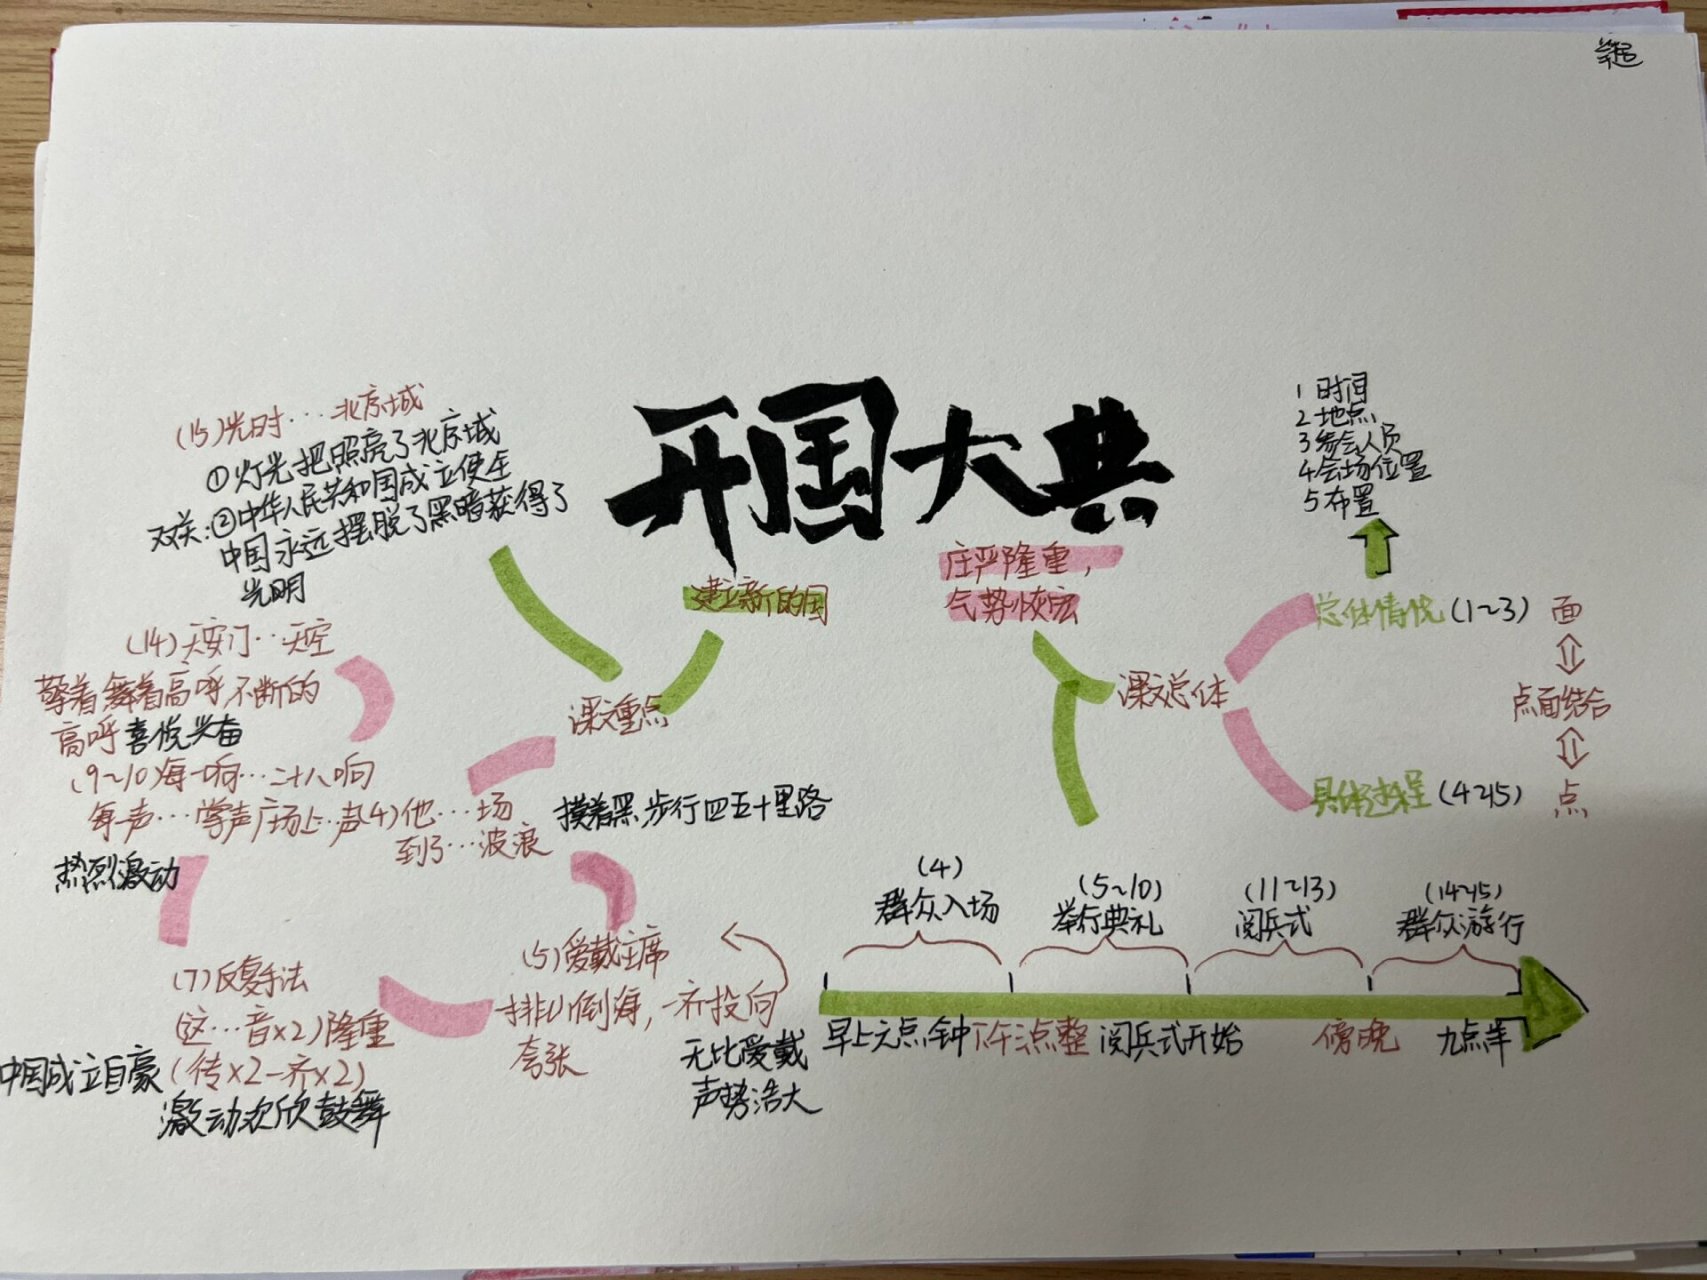 开国大典
建立新的国
庄严隆重，
气势恢宏
1 时间
2 地点
3 参会人员
4 会场位置
5 布置
总体情况 (1~3) 面
点面结合
具体过程 (4~15) 点
课文总体
课文重点
(15) 光明…北京城
①灯光把照亮了北京城
双关：②中华人民共和国成立使全
中国永远摆脱了黑暗获得了
光明
(14) 天安门…天空
擎着舞着高呼不断的
高呼喜悦兴奋
(9~10) 每一响…二十八响
每一声…掌声广场上…声
热烈激动
(4) 他…场
到了…波浪
摸着黑步行四五十里路
(5) 爱戴主席
排山倒海，一齐投向
夸张
无比爱戴
声势浩大
(7) 反复手法
(这…音×2) 隆重
中国成立自豪 (传×2一齐×2)
激动欢欣鼓舞
(4)
群众入场
(5~10)
举行典礼
(11~13)
阅兵式
(14~15)
群众游行
早上六点钟 下午三点整 阅兵式开始 傍晚 九点半